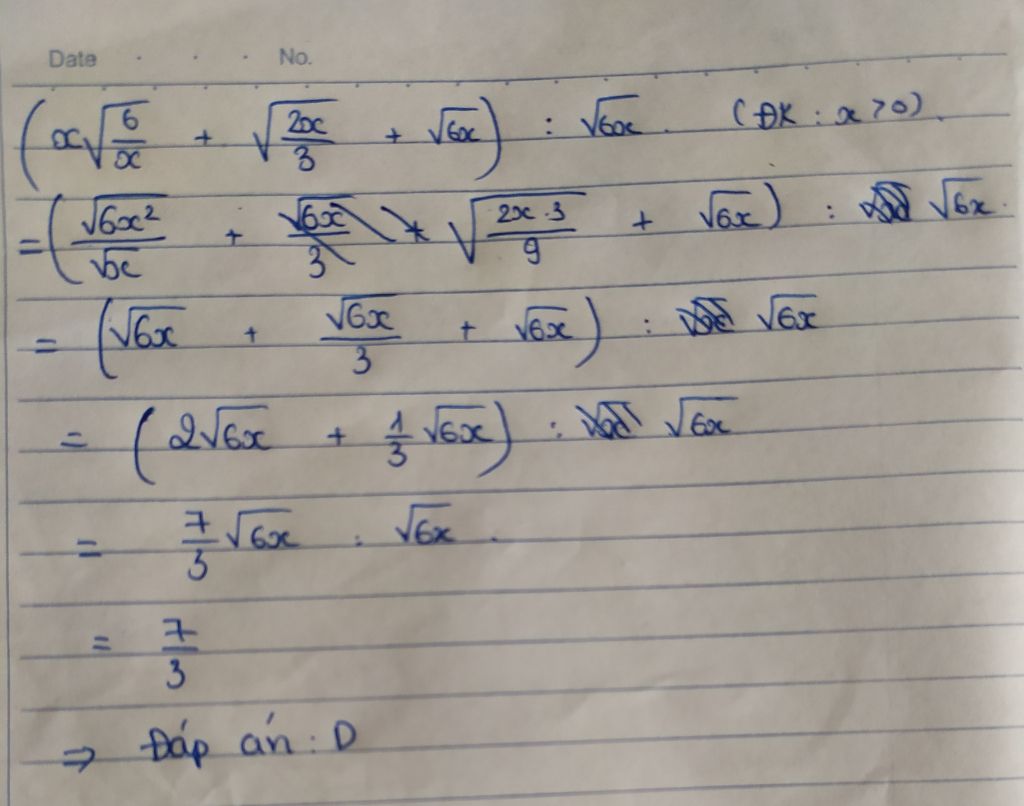 Date . . . No.
(x√(6/x) + √(2x/3) + √6x) : √6x. (ĐK : x > 0).
= (√6x²/√x + √(2x.3/9) + √6x) : √6x.
= (√6x + √6x/3 + √6x) : √6x
= (2√6x + 1/3 √6x) : √6x
= 7/3 √6x : √6x.
= 7/3
⇒ Đáp án : D